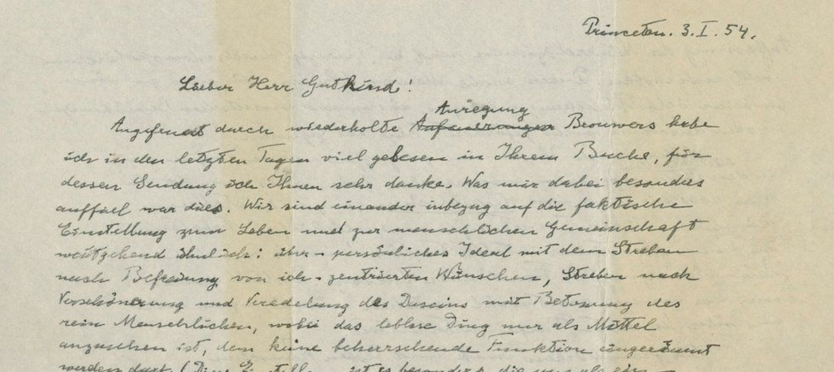 Princeton. 3. I. 54.
Lieber Herr Gutkind!
Anregung
Angefeuert durch wiederholte Brouwers habe
ich in den letzten Tagen viel gelesen in Ihrem Buche, für
dessen Sendung ich Ihnen sehr danke. Was mir dabei besonders
auffiel war dies. Wir sind einander inbezug auf die faktische
Einstellung zum Leben und zur menschlichen Gemeinschaft
weitgehend ähnlich: über-persönliches Ideal mit dem Streben
nach Befreiung von ich-zentrierten Wünschen, Streben nach
Verschönerung und Veredelung des Daseins mit Betonung des
rein Menschlichen, wobei das leblose Ding nur als Mittel
anzusehen ist, dem keine beherrschende Funktion eingeräumt
werden darf. (Diese ist es besonders, die uns als ein